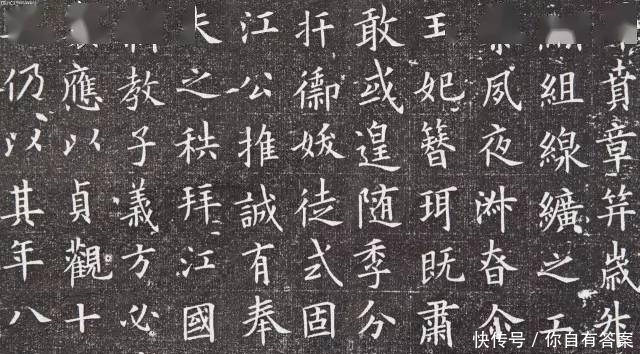 賁章笄歲
組線纊之五
夙夜
王妃簪珥既肅
敢或遑随季分
扞媛徒式固
江公推誠有奉
夫之秩拜江國
教子義方必
應以貞觀十
仍以其年八
快传号/你自有答案